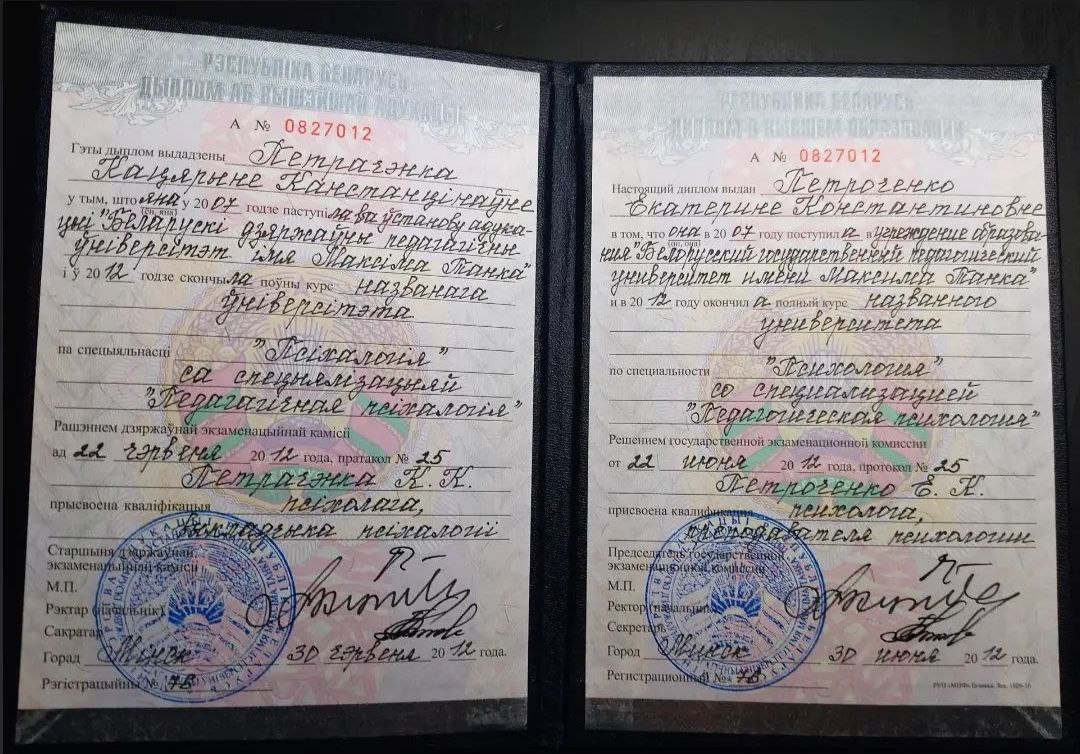 РЭСПУБЛІКА БЕЛАРУСЬ
ДЫПЛОМ АБ ВЫШЭЙШАЙ АДУКАЦЫІ
А № 0827012
Гэты дыплом выдадзены Петрачэнка
Кацярыне Канстанцінаўне
у тым, што яна у 2007 годзе паступіла ва ўстанову адука-
(ён, яна)
цыі "Беларускі дзяржаўны педагагічны
ўніверсітэт імя Максіма Танка"
і ў 2012 годзе скончыла поўны курс названага
ўніверсітэта
па спецыяльнасці "Псіхалогія"
са спецыялізацыяй
"Педагагічная псіхалогія"
Рашэннем дзяржаўнай экзаменацыйнай камісіі
ад 22 чэрвеня 2012 года, пратакол № 25
Петрачэнка К. К.
прысвоена кваліфікацыя псіхолага,
выкладчыка псіхалогіі
Старшыня дзяржаўнай
экзаменацыйнай камісіі
М.П.
Рэктар (начальнік)
Сакратар
Горад Мінск 30 чэрвеня 2012 года.
Рэгістрацыйны № 78
РЕСПУБЛИКА БЕЛАРУСЬ
ДИПЛОМ О ВЫСШЕМ ОБРАЗОВАНИИ
А № 0827012
Настоящий диплом выдан Петроченко
Екатерине Константиновне
в том, что она в 2007 году поступила в учреждение образова-
(он, она)
ния "Белорусский государственный педагогический
университет имени Максима Танка"
и в 2012 году окончила полный курс названного
университета
по специальности "Психология"
со специализацией
"Педагогическая психология"
Решением государственной экзаменационной комиссии
от 22 июня 2012 года, протокол № 25
Петроченко Е. К.
присвоена квалификация психолога,
преподавателя психологии
Председатель государственной
экзаменационной комиссии
М.П.
Ректор (начальник)
Секретарь
Город Минск 30 июня 2012 года.
Регистрационный № 78